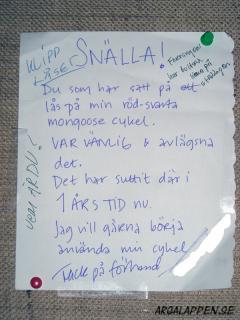 KLIPP
LÅSET
SNÄLLA!
har
Du som har satt på ett
lås på min röd-svarta
mongoose cykel.
VAR VÄNLIG & avlägsna
det.
Det har suttit där i
1 ÅRS TID nu.
Jag vill gärna börja
använda min cykel
Tack på förhand
VEM ÄR DU?
ARGALAPPEN.SE